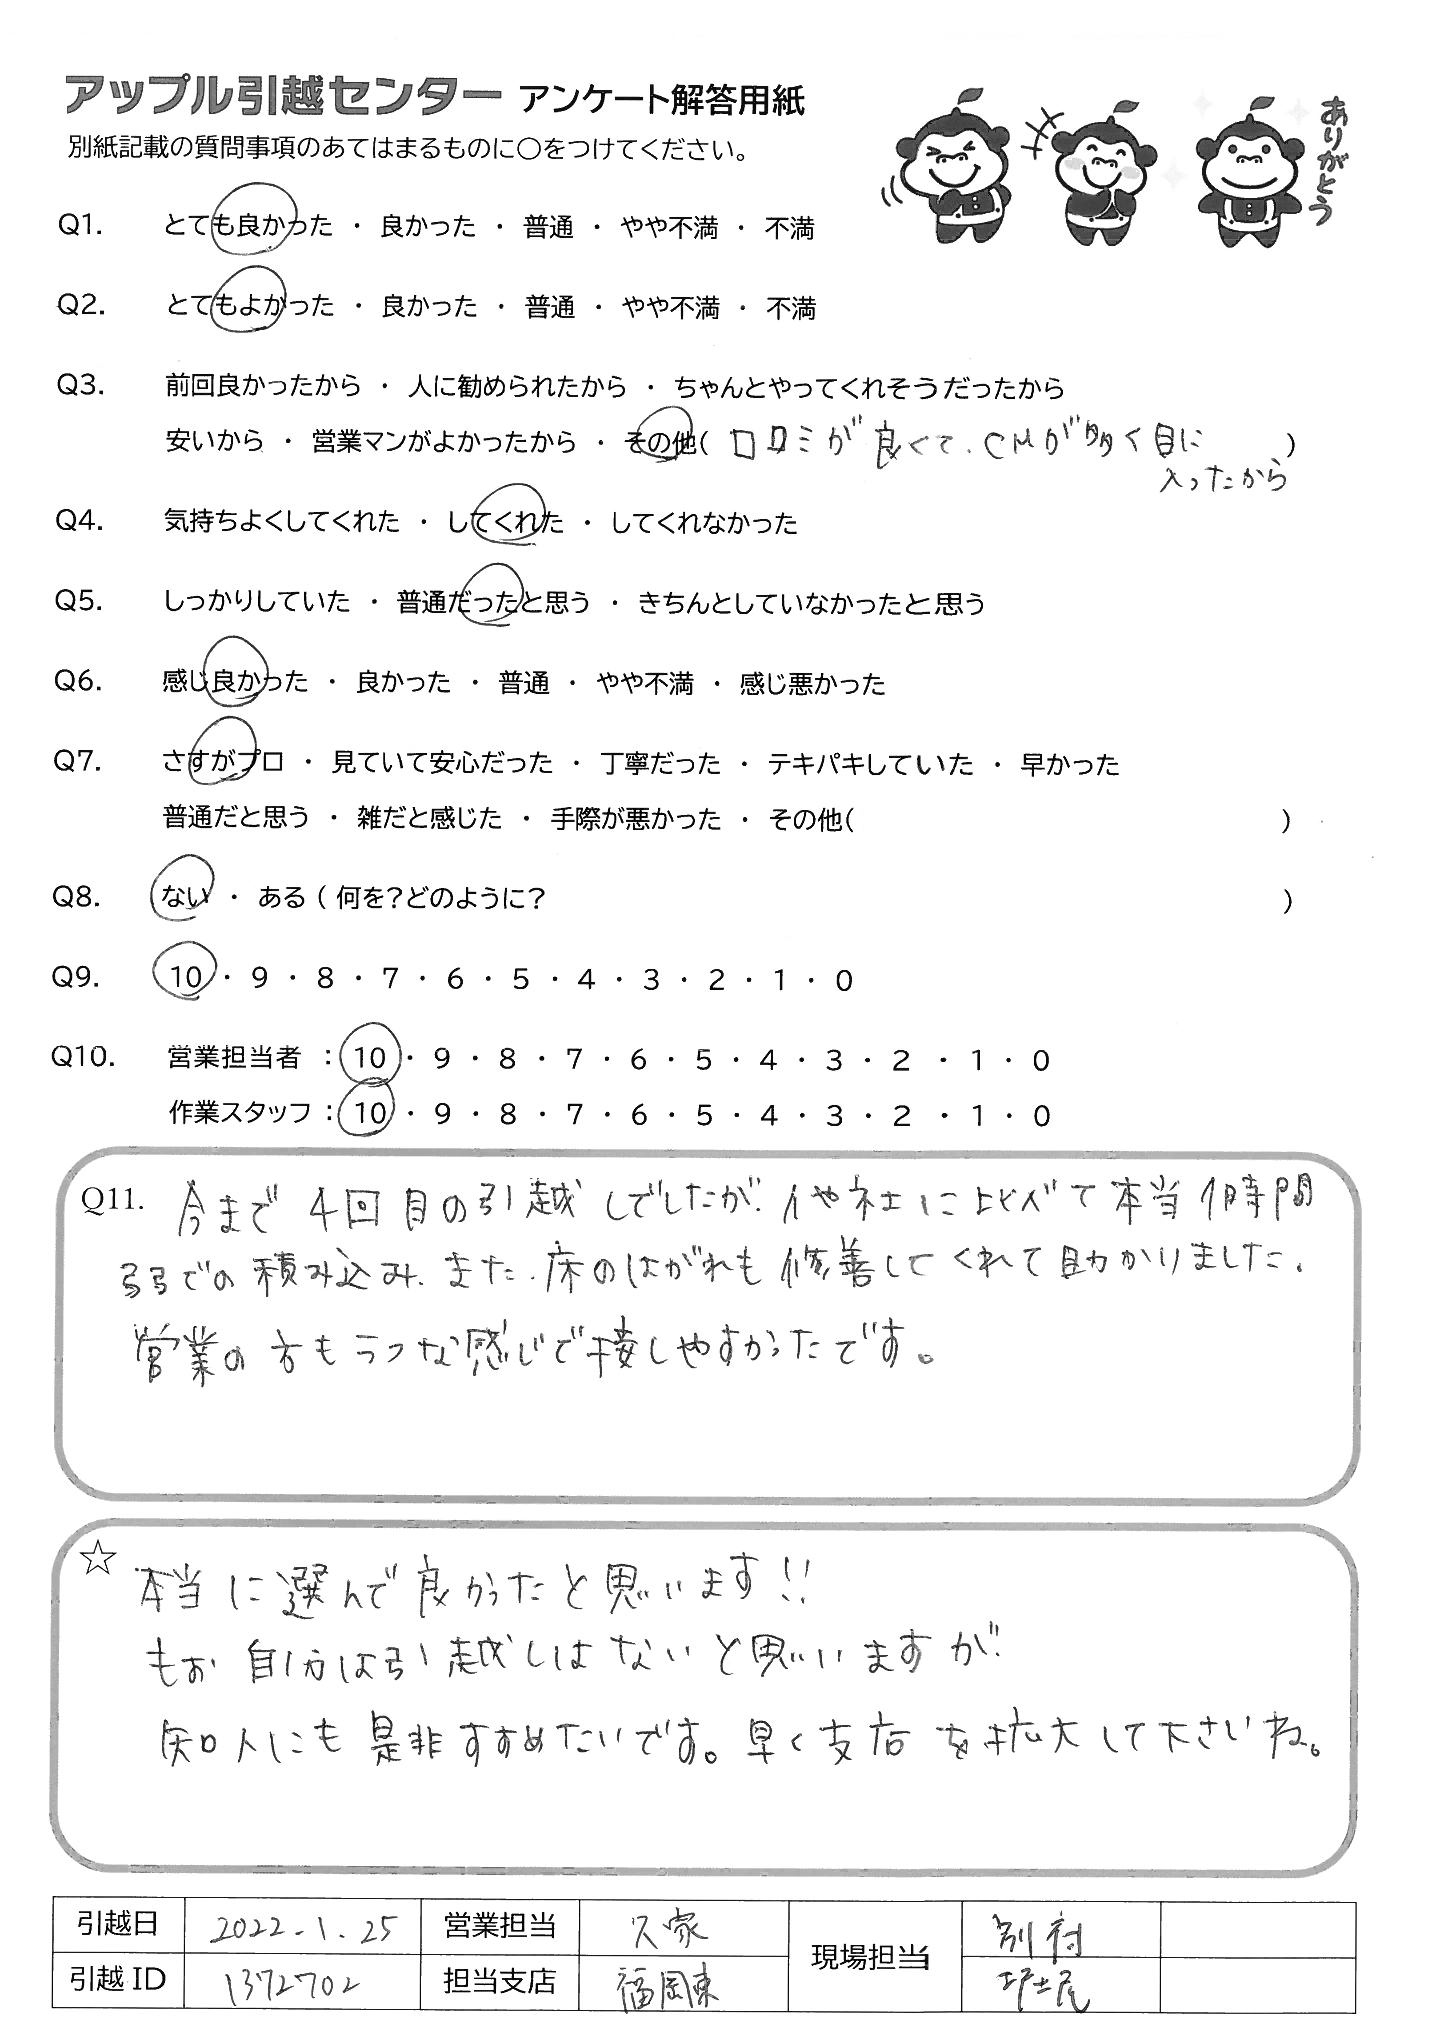 アップル引越センター アンケート解答用紙
ありがとう
別紙記載の質問事項のあてはまるものに○をつけてください。
Q1. とても良かった ・ 良かった ・ 普通 ・ やや不満 ・ 不満
Q2. とてもよかった ・ 良かった ・ 普通 ・ やや不満 ・ 不満
Q3. 前回良かったから ・ 人に勧められたから ・ ちゃんとやってくれそうだったから
安いから ・ 営業マンがよかったから ・ その他( 口コミが良くて、CMが多く目に )
入ったから
Q4. 気持ちよくしてくれた ・ してくれた ・ してくれなかった
Q5. しっかりしていた ・ 普通だったと思う ・ きちんとしていなかったと思う
Q6. 感じ良かった ・ 良かった ・ 普通 ・ やや不満 ・ 感じ悪かった
Q7. さすがプロ ・ 見ていて安心だった ・ 丁寧だった ・ テキパキしていた ・ 早かった
普通だと思う ・ 雑だと感じた ・ 手際が悪かった ・ その他( )
Q8. ない ・ ある ( 何を?どのように? )
Q9. 10 ・ 9 ・ 8 ・ 7 ・ 6 ・ 5 ・ 4 ・ 3 ・ 2 ・ 1 ・ 0
Q10. 営業担当者 : 10 ・ 9 ・ 8 ・ 7 ・ 6 ・ 5 ・ 4 ・ 3 ・ 2 ・ 1 ・ 0
作業スタッフ : 10 ・ 9 ・ 8 ・ 7 ・ 6 ・ 5 ・ 4 ・ 3 ・ 2 ・ 1 ・ 0
Q11. 今まで4回目の引越しでしたが、他社に比べて本当1時間
弱での積み込み、また、床のはがれも修善してくれて助かりました。
営業の方もラフな感じで接しやすかったです。
☆ 本当に選んで良かったと思います!!
もお自分は引越しはないと思いますが、
知人にも是非すすめたいです。早く支店を拡大して下さいね。
引越日 2022.1.25 営業担当 久家 現場担当 別府
引越ID 1372702 担当支店 福岡東